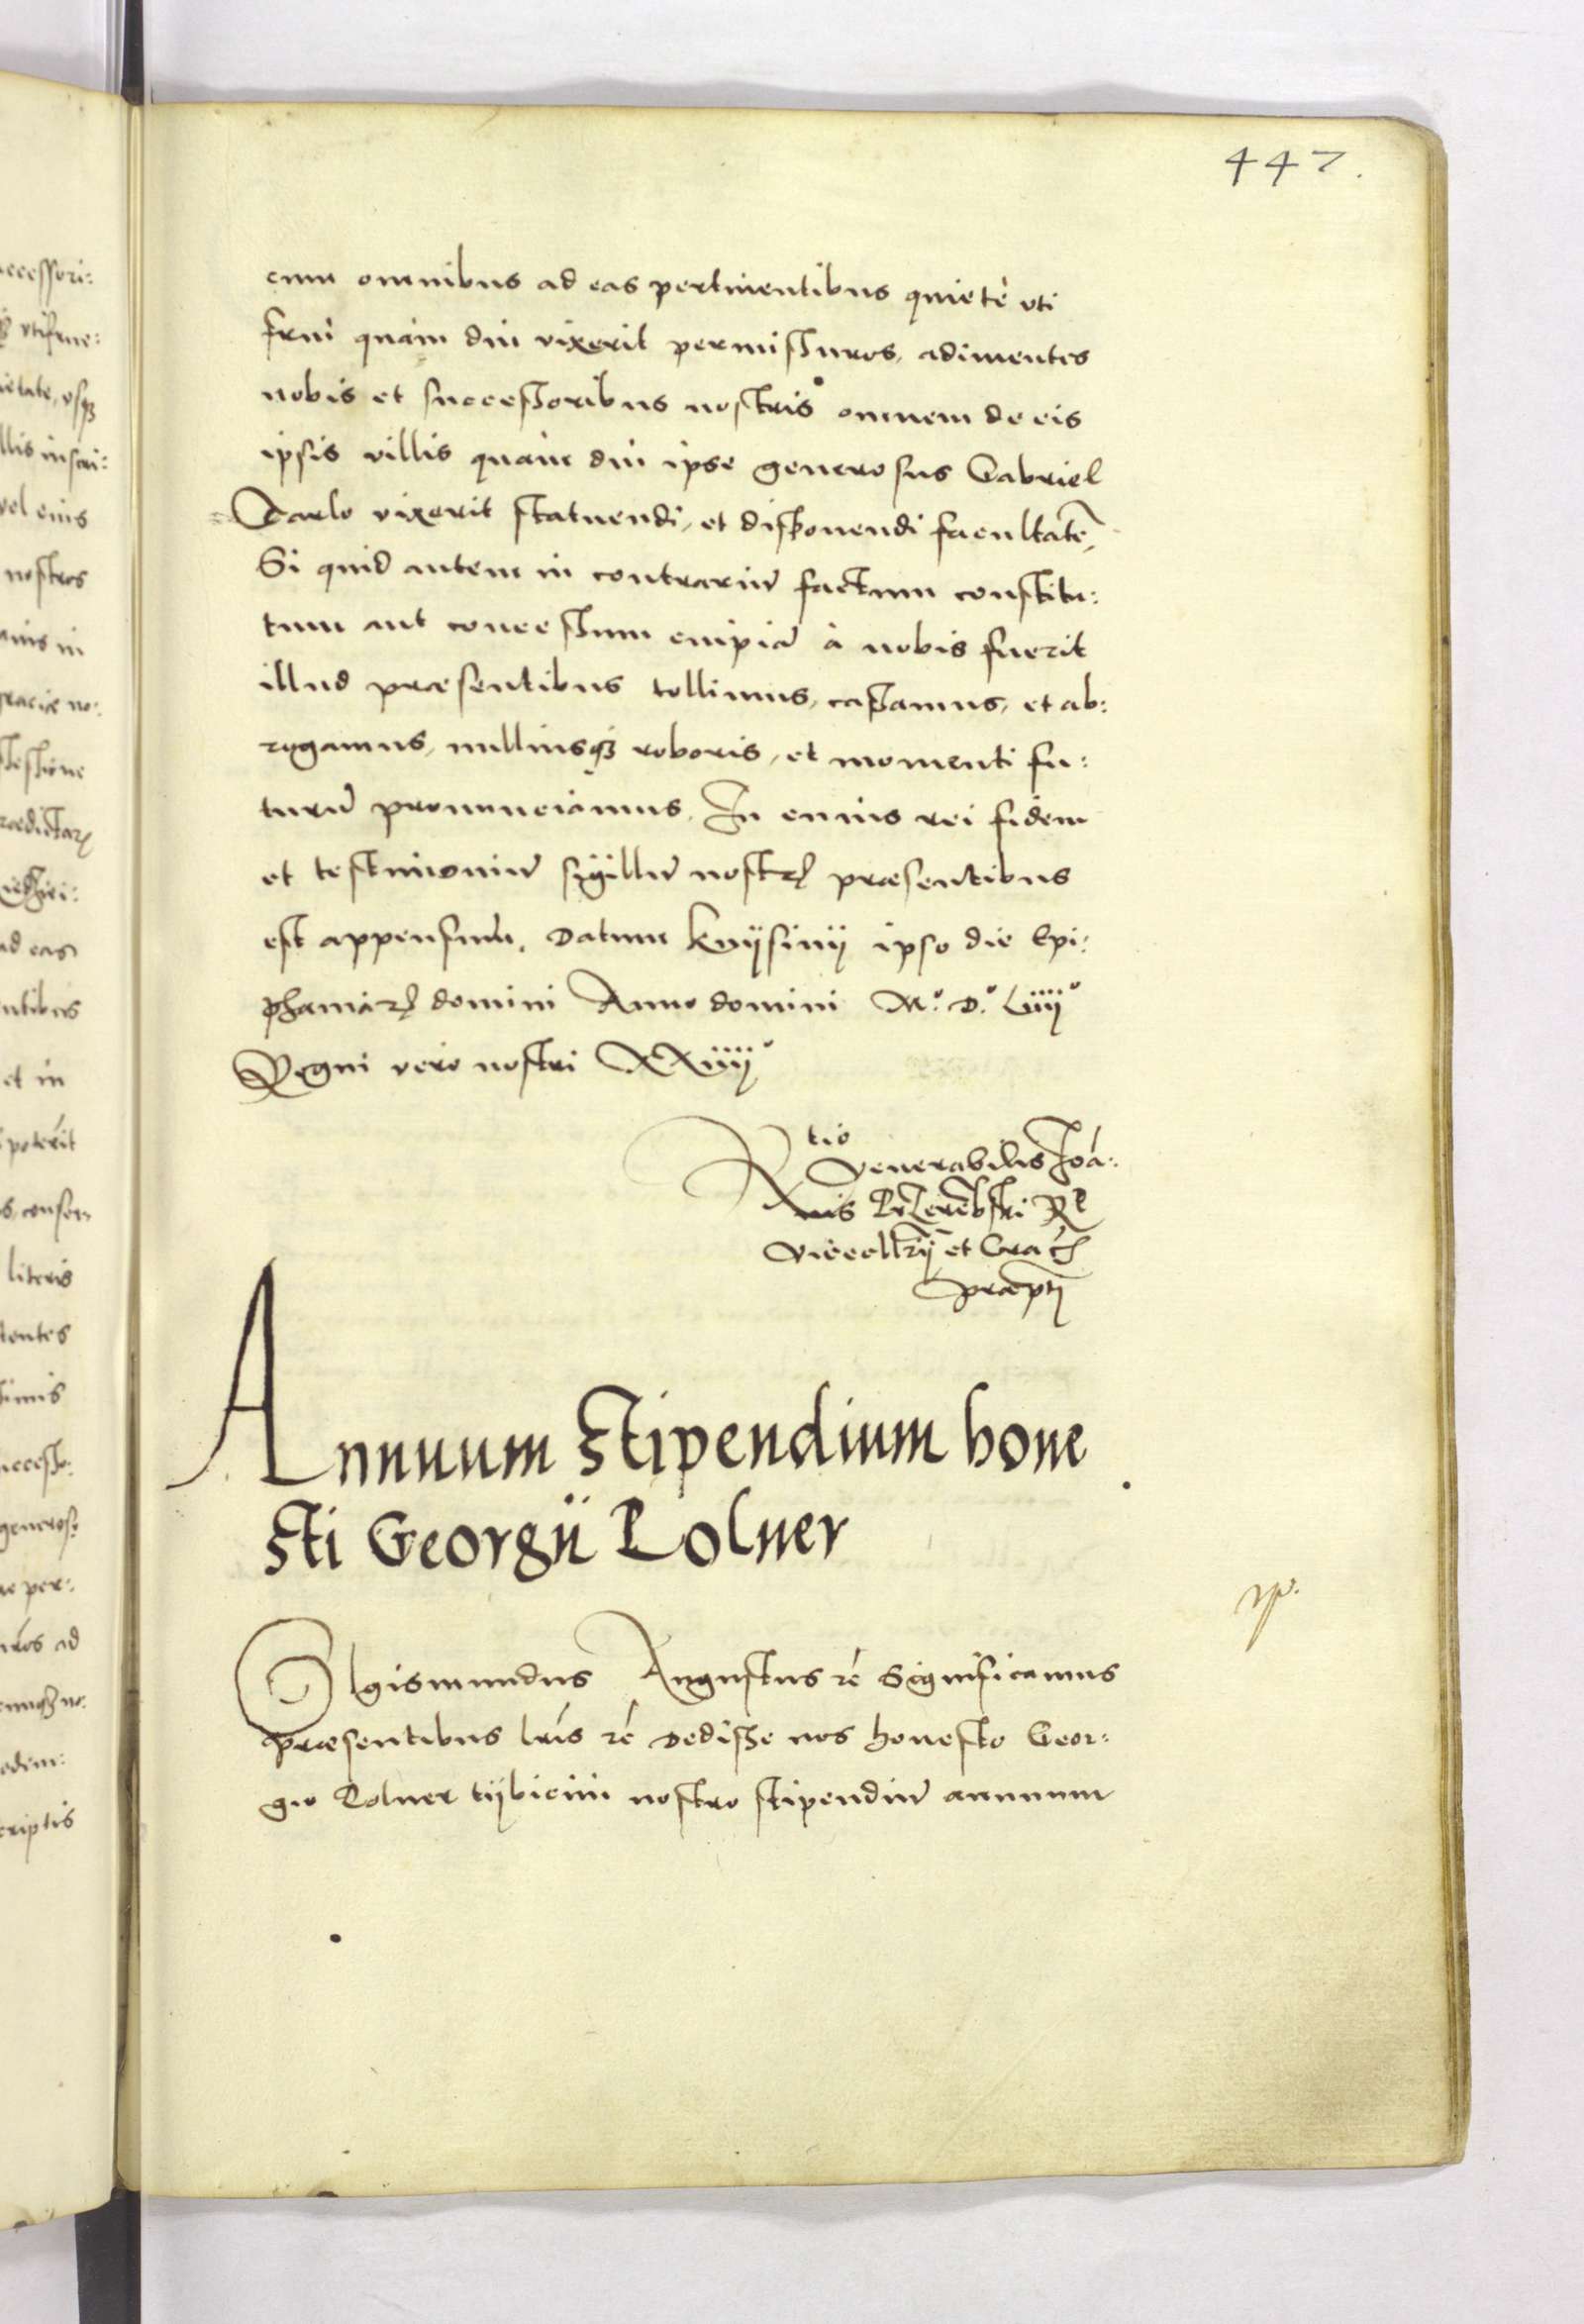 447.
cum omnibus ad eas pertinentibus quietè vti
frui quàm diu vixerit permissuros, adimentes
nobis et successoribus nostris omnem de eis
ipsis villis quàm diu ipse generosus Gabriel
Tarlo vixerit statuendi, et disponendi facultatē,
Si quid autem in contrariū factum constitu:
tum aut concessum cuipiā à nobis fuerit
illud præsentibus tollimus, cassamus, et ab:
rogamus, nulliusqȝ roboris, et momenti fu:
turū pronunciamus. In cuius rei fidem
et testimoniū sigillū nostrꝝ præsentibus
est appensum. Datum Knyſinij ipso die Epi:
phaniarꝝ domini Anno domini M.° D.° Liiij°
Regni vero nostri XXiiij°
Rtio
Venerabilis Joā:
nis Przerēbski R P
Vicecellrij et Crac̄
præptj
Annuum stipendium hone
sti Georgij Tolner
Sigismundus Augustus rē Significamus
præsentibus lris rē Dedisse nos honesto Geor:
gio Tolner tybicini nostro stipendiū annuum